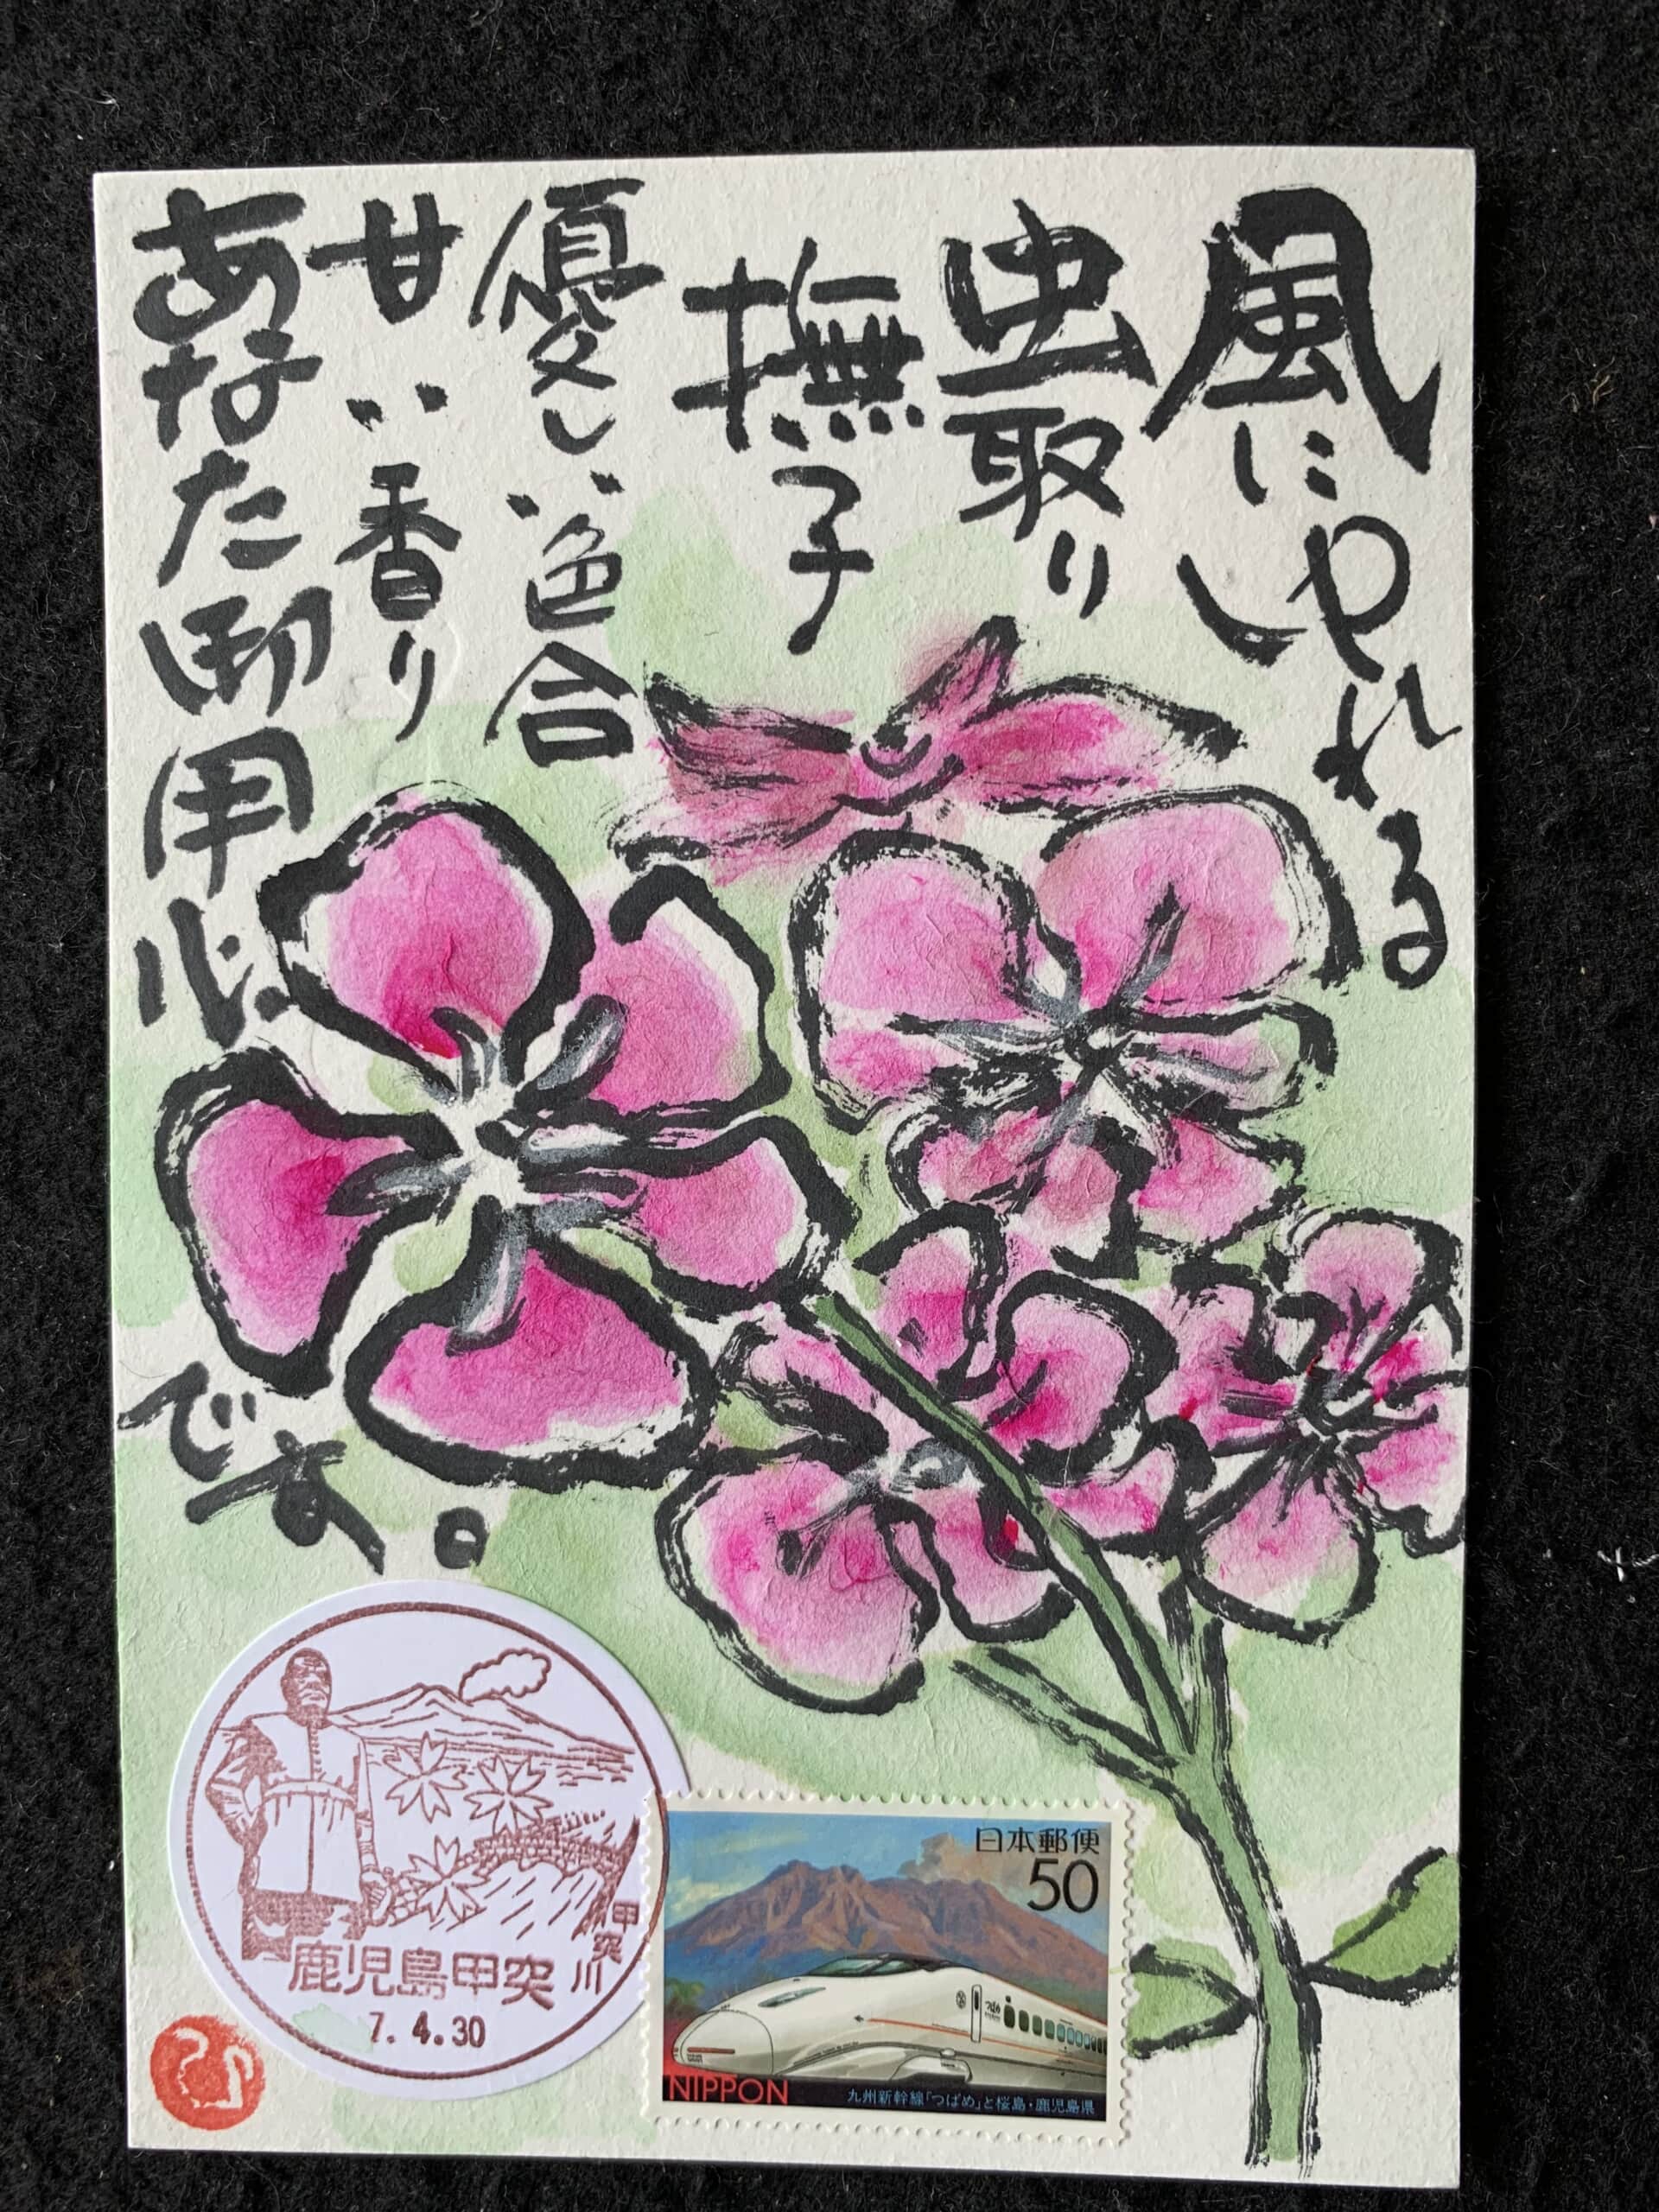 風にゆれる
虫取り
撫子
優しい色合
甘い香り
あなた御用心
です。
甲突川
鹿児島甲突
7.4.30
日本郵便
50
つばめ
NIPPON
九州新幹線「つばめ」と桜島・鹿児島県